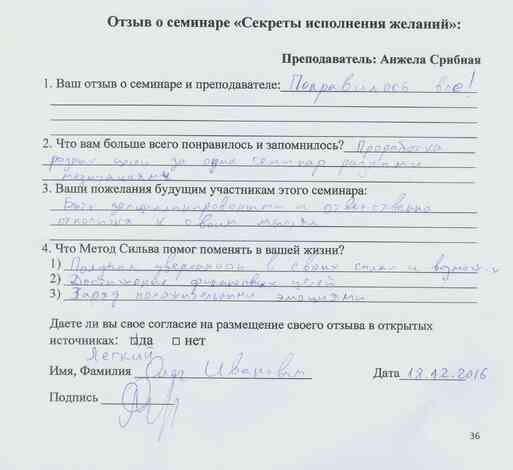 Отзыв о семинаре «Секреты исполнения желаний»:
Преподаватель: Анжела Срибная
1. Ваш отзыв о семинаре и преподавателе: Понравилось все!
2. Что вам больше всего понравилось и запомнилось? Проработка
разных целей за один семинар разными
техниками
3. Ваши пожелания будущим участникам этого семинара:
Быть дисциплинированным и ответственно
относится к своим мыслям
4. Что Метод Сильва помог поменять в вашей жизни?
1) Получил уверенность в своих силах и
2) Достижение финансовых целей
3) Заряд положительными эмоциями
Даете ли вы свое согласие на размещение своего отзыва в открытых
источниках: □да □ нет
Легкий
Имя, Фамилия Олег Иванович Дата 18.12.2016
Подпись
36